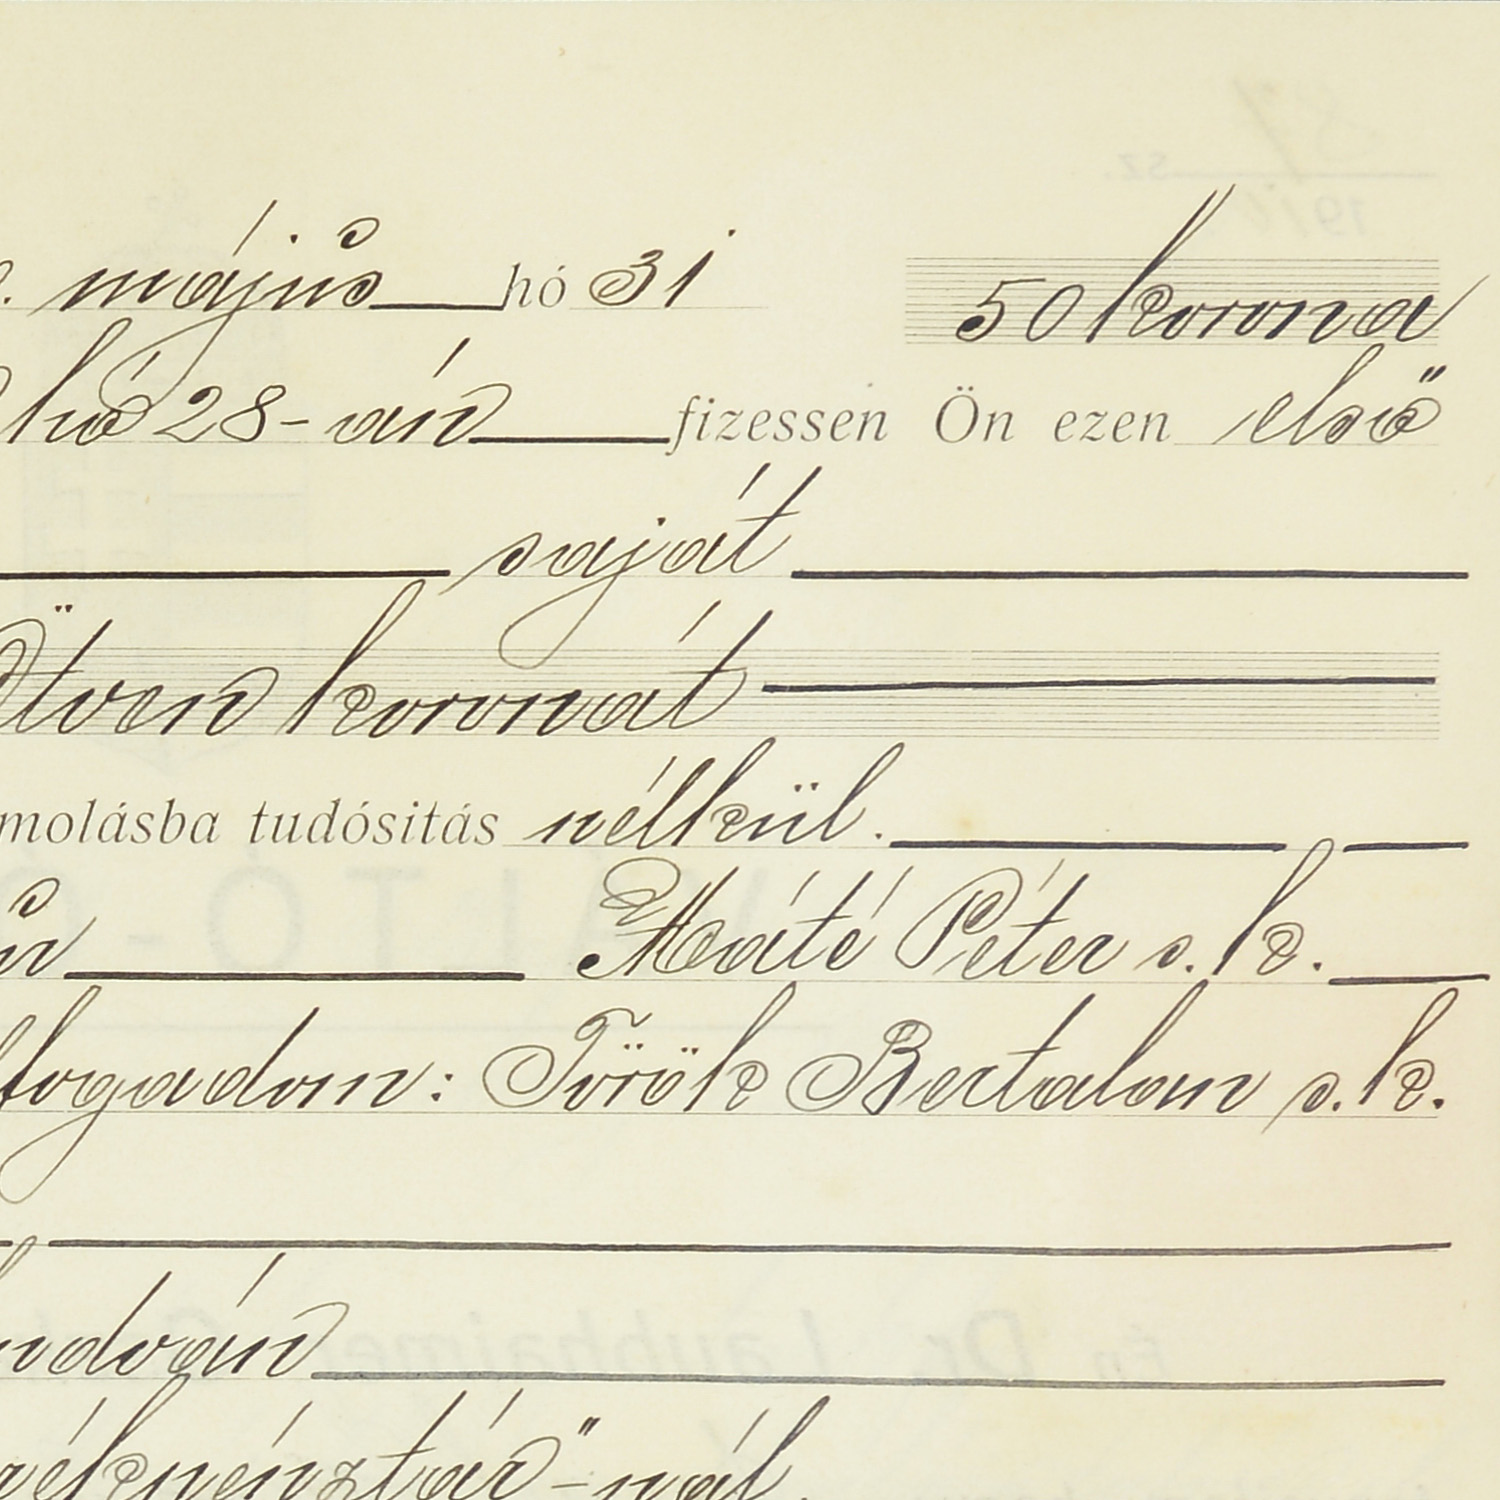 május hó 31
50 korona
hó 28-án fizessen Ön ezen első
saját
Ötven koronát
molásba tudósitás nélkül.
Máté Péter s. k.
fogadom: Török Bertalan s. k.
ndván
rékpénztár"-nál.